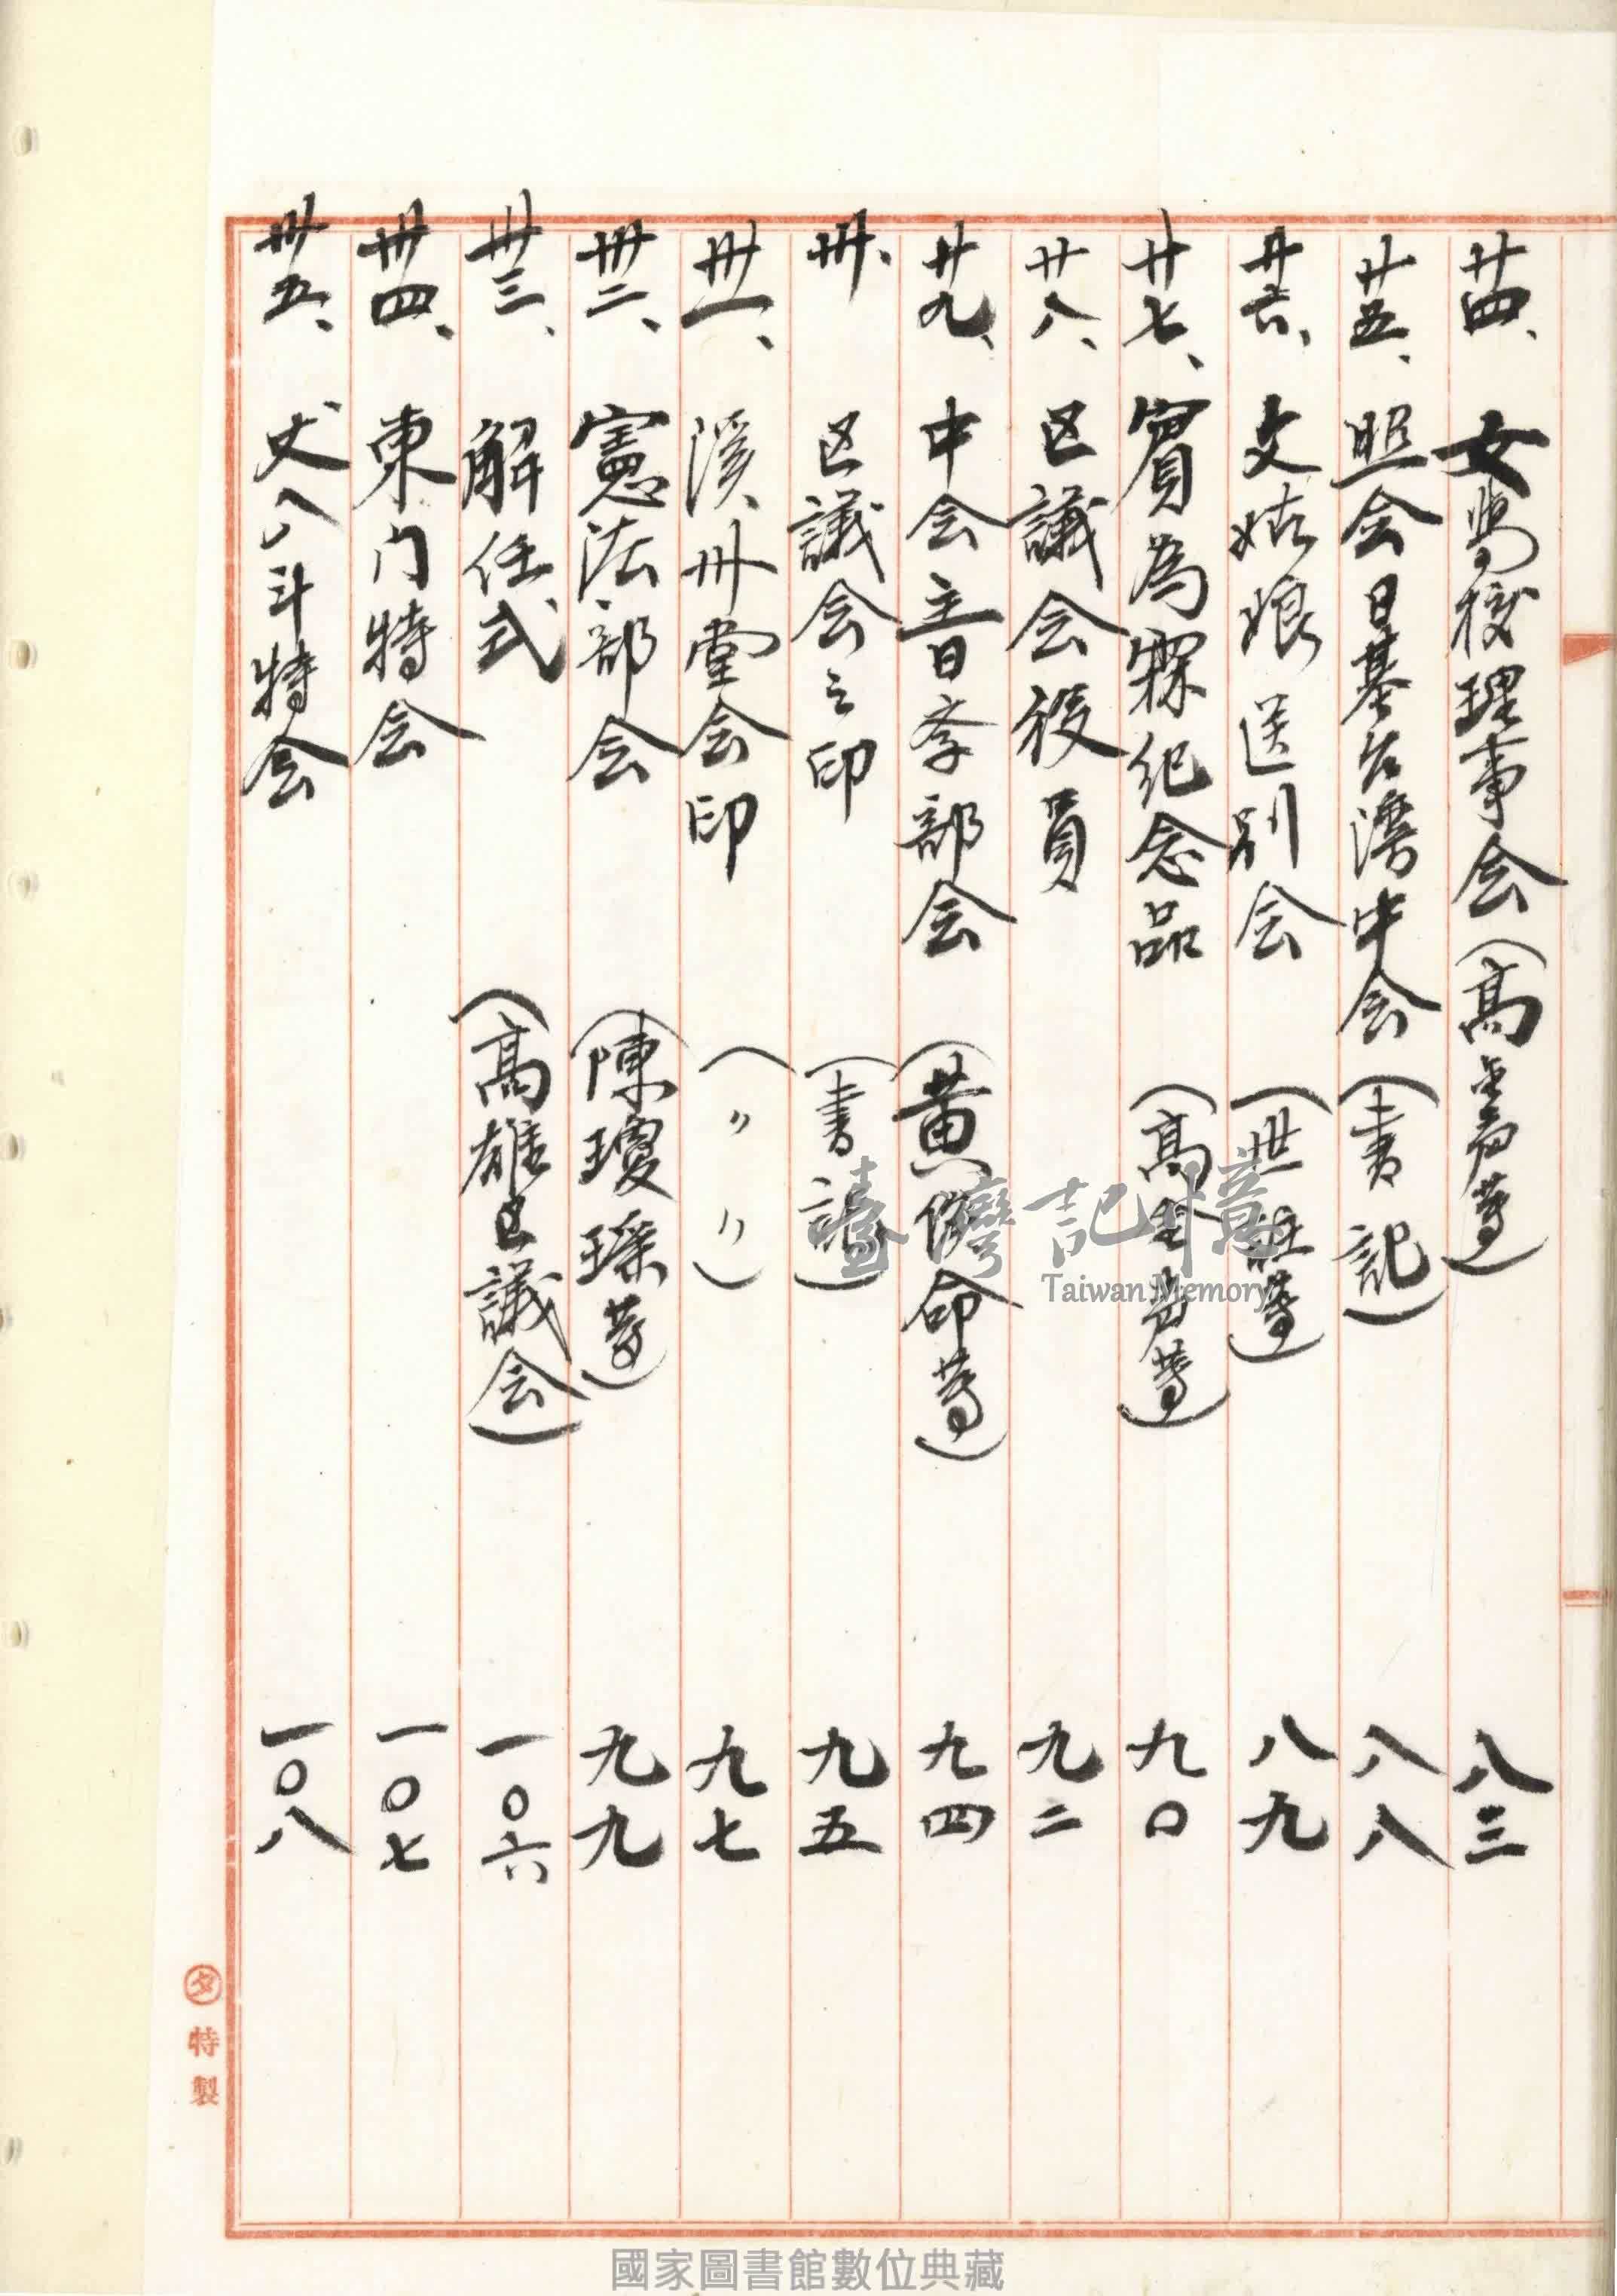 廿四、女學校理事会（高金声等）八三
廿五、照会日基台湾中会（書記）八八
廿六、文姑娘送別会（世註等）八九
廿七、賓為霖紀念品（高金声等）九〇
廿八、区議会役員 九二
廿九、中会音楽部会（黄俟命等）九四
卅、区議会之印（書記）九五
卅一、溪州堂会印（〃〃）九七
卅二、憲法部会（陳瓊琚等）九九
卅三、解任式（高雄区議会）一〇六
卅四、東门特会 一〇七
卅五、犬八斗特会 一〇八
夕特製
臺灣記憶
Taiwan Memory
國家圖書館數位典藏